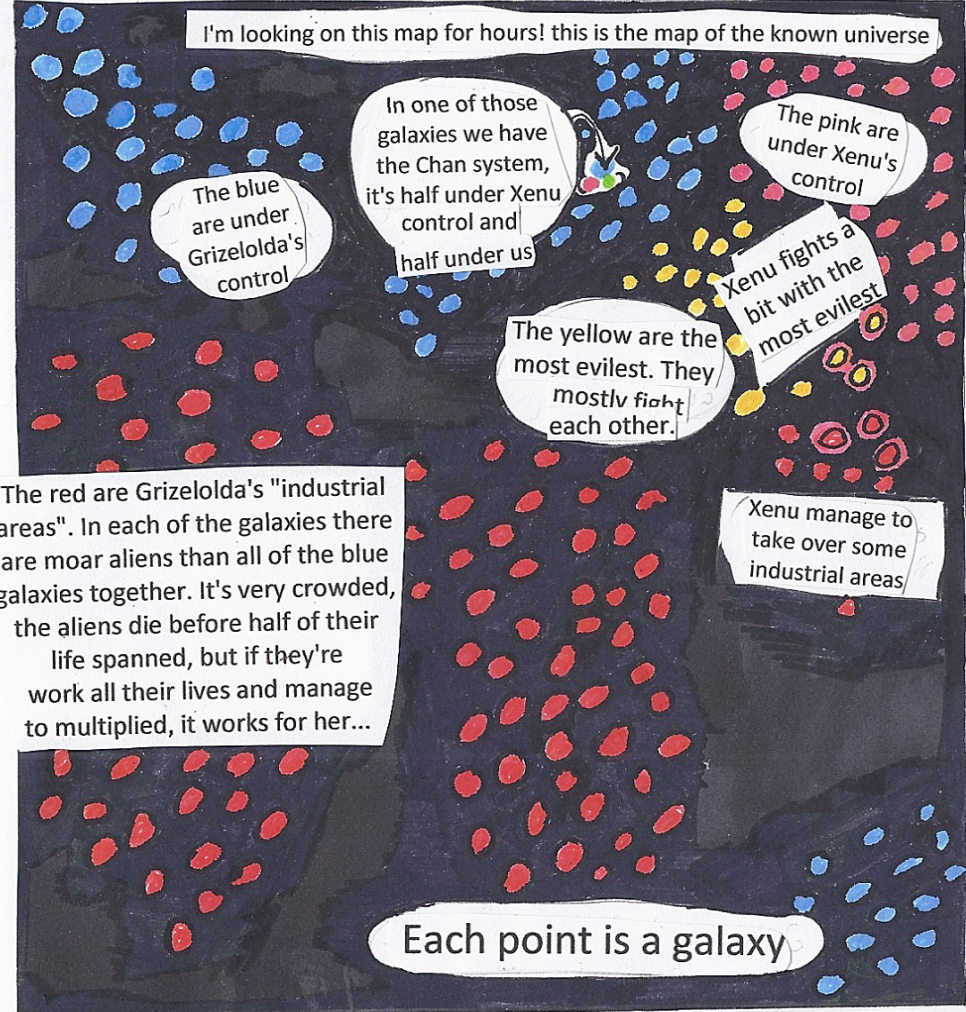 I'm looking on this map for hours! this is the map of the known universe
In one of those
galaxies we have
the Chan system,
it's half under Xenu
control and
half under us
The pink are
under Xenu's
control
The blue
are under
Grizelolda's
control
Xenu fights a
bit with the
most evilest
The yellow are the
most evilest. They
mostly fight
each other.
The red are Grizelolda's "industrial
areas". In each of the galaxies there
are moar aliens than all of the blue
galaxies together. It's very crowded,
the aliens die before half of their
life spanned, but if they're
work all their lives and manage
to multiplied, it works for her...
Xenu manage to
take over some
industrial areas
Each point is a galaxy